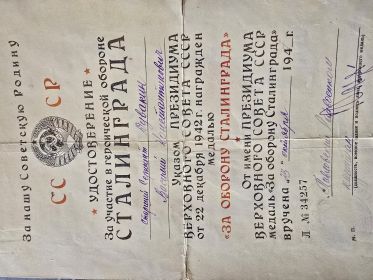 За нашу советскую родину
СС СР
УДОСТОВЕРЕНИЕ
За участие в героической обороне
СТАЛИНГРАДА
Старший Сержант
Константинович
Указом ПРЕЗИДИУМА
ВЕРХОВНОГО СОВЕТА СССР
от 22 декабря 1942 г. награжден
медалью
«ЗА ОБОРОНУ СТАЛИНГРАДА»
От имени ПРЕЗИДИУМА
ВЕРХОВНОГО СОВЕТА СССР
медаль «За оборону Сталинграда»
вручена 194 г.
Л № 34257
М. П.